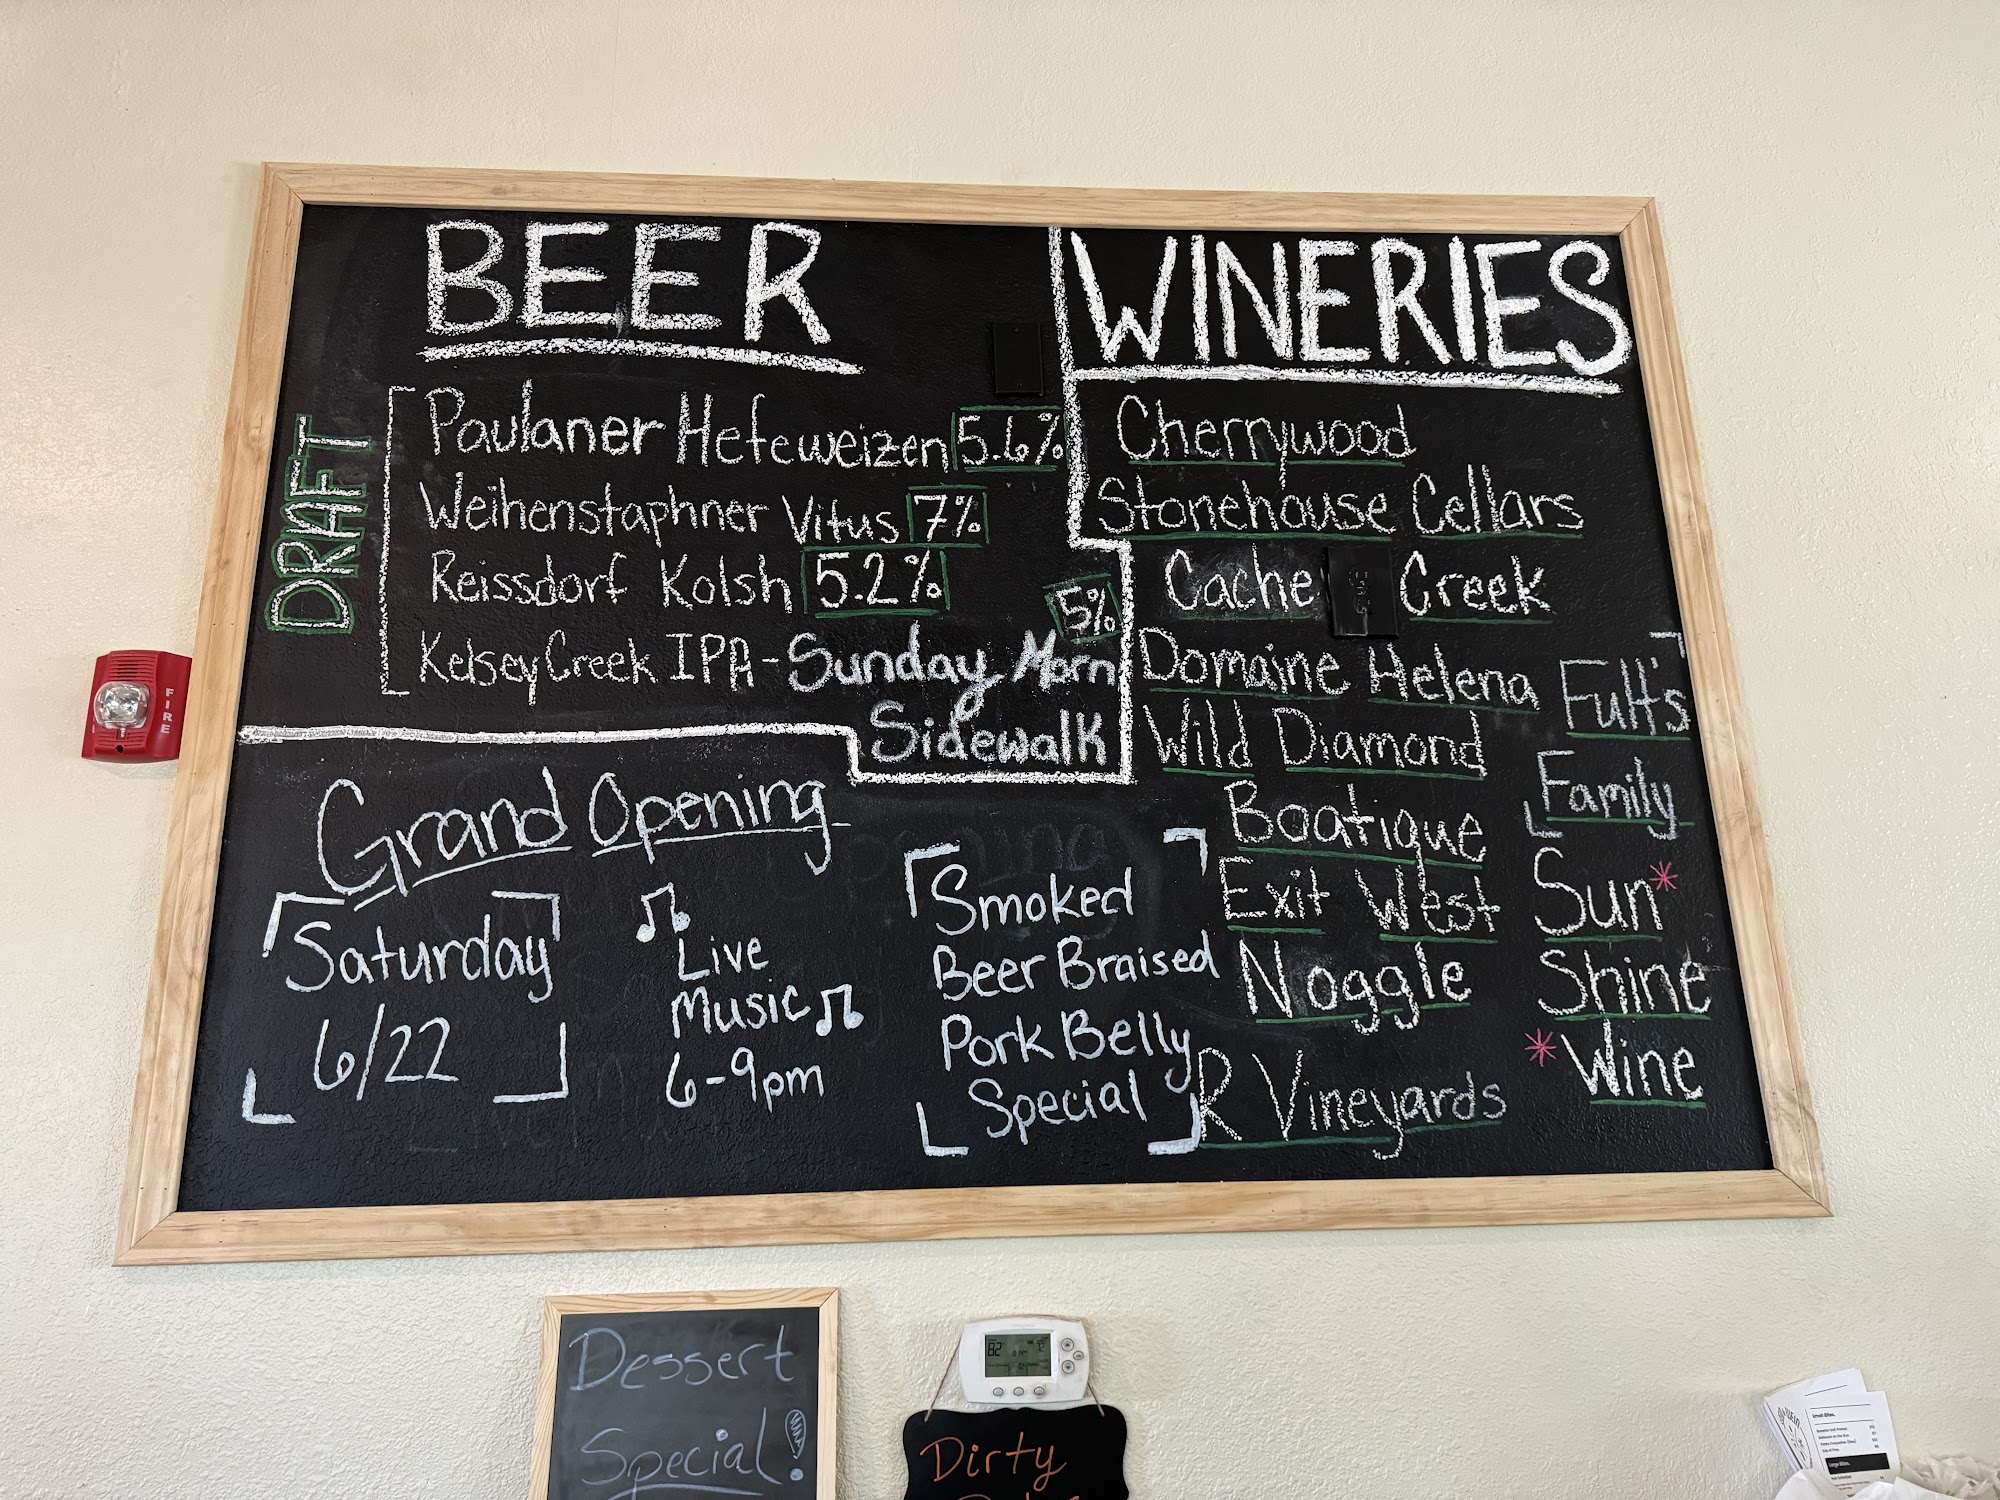 BEER
DRAFT
Paulaner Hefeweizen 5.6%
Weihenstaphner Vitus 7%
Reissdorf Kolsh 5.2%
Kelsey Creek IPA - Sunday Morn
Sidewalk
5%
WINERIES
Cherrywood
Stonehouse Cellars
Cache Creek
Domaine Helena
Wild Diamond
Boatique
Exit West
Noggle
R Vineyards
Fult's
Family
Sun*
Shine
*Wine
Grand Opening
Saturday
6/22
Live
Music
6-9pm
Smoked
Beer Braised
Pork Belly
Special
FIRE
Dessert
Special!
82
72
Dirty
Small Bites.
Large Bites.